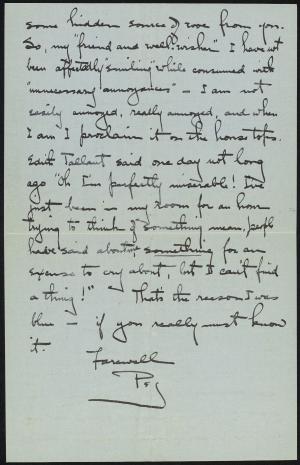 some hidden source of woe from you.
So, my "friend and well wisher" I have not
been affectedly "smiling" while consumed with
"unnecessary annoyances" — I am not
easily annoyed, really annoyed, and when
I am I proclaim it on the house tops.
Edith Tallant said one day not long
ago "Oh I'm perfectly miserable! I've
just been in my room for an hour
trying to think of something mean, people
have said about me something for an
excuse to cry about, but I can't find
a thing!" That's the reason I was
blue — if you really must know
it.
Farewell
Peg